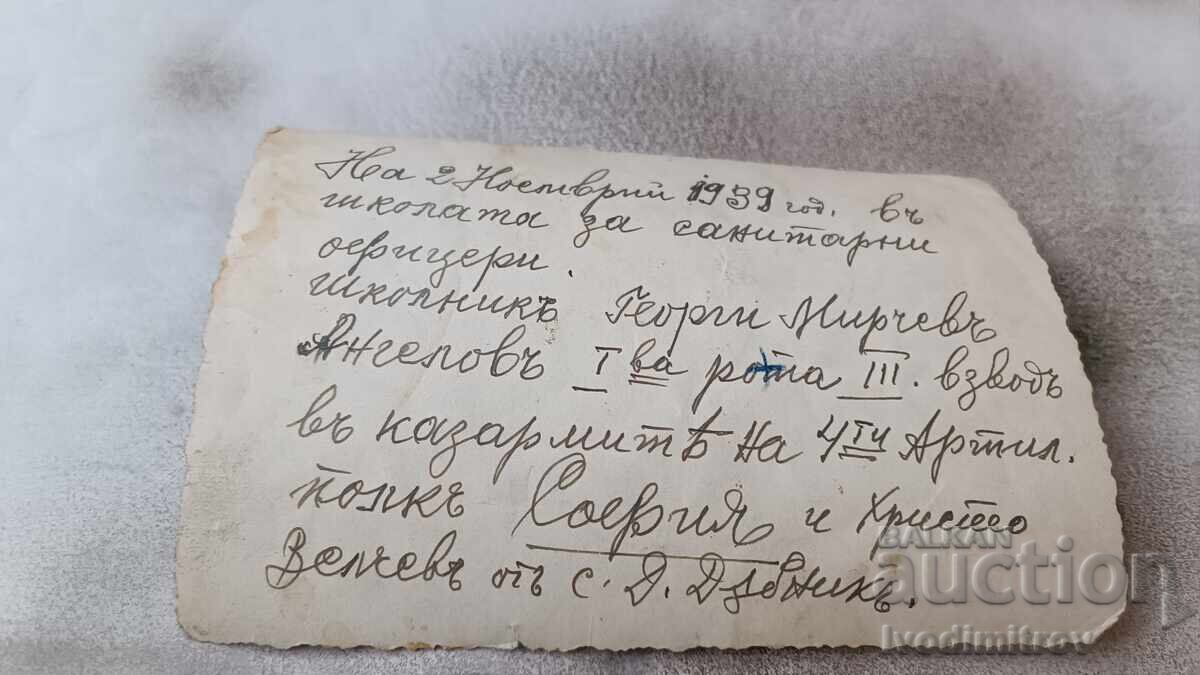 На 2 Ноемврий 1939 год. въ
школата за санитарни
офицери.
школникъ Георги Мирчевъ
Ангеловъ I ва рота III. взводъ
въ казармитѣ на 4ти Артил.
полкъ София и Христо
Велчевъ отъ с. Д. Дѫбникъ.
BALKAN
auction
Ivodimitrov